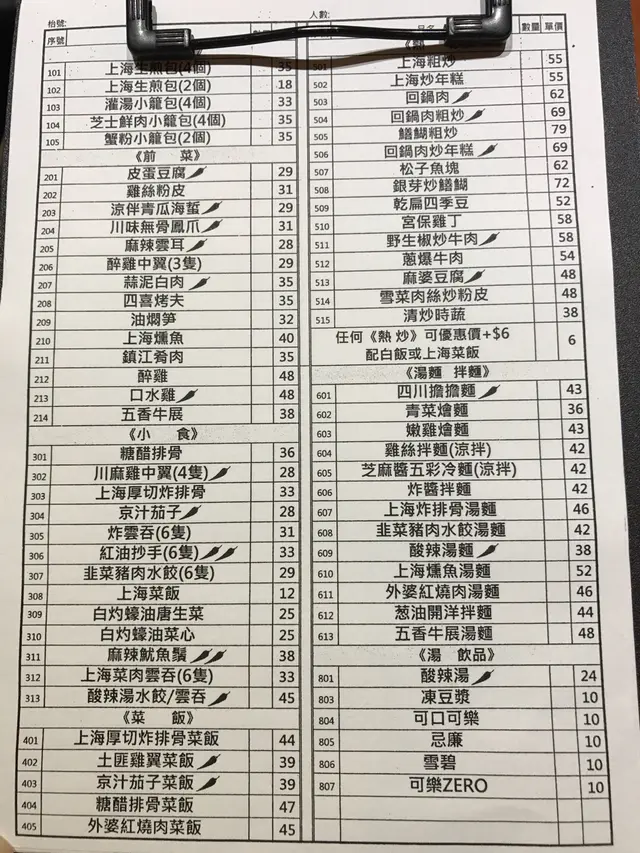 枱號:
人數:
序號
數量 單價
101 上海生煎包(4個) 35
102 上海生煎包(2個) 18
103 灌湯小籠包(4個) 33
104 芝士鮮肉小籠包(4個) 35
105 蟹粉小籠包(2個) 35
《前 菜》
201 皮蛋豆腐 29
202 雞絲粉皮 31
203 涼伴青瓜海蜇 29
204 川味無骨鳳爪 31
205 麻辣雲耳 28
206 醉雞中翼(3隻) 29
207 蒜泥白肉 35
208 四喜烤夫 35
209 油燜筍 32
210 上海燻魚 40
211 鎮江肴肉 35
212 醉雞 48
213 口水雞 48
214 五香牛展 38
《小 食》
301 糖醋排骨 36
302 川麻雞中翼(4隻) 28
303 上海厚切炸排骨 33
304 京汁茄子 28
305 炸雲吞(6隻) 31
306 紅油抄手(6隻) 33
307 韭菜豬肉水餃(6隻) 29
308 上海菜飯 12
309 白灼蠔油唐生菜 25
310 白灼蠔油菜心 25
311 麻辣魷魚鬚 38
312 上海菜肉雲吞(6隻) 33
313 酸辣湯水餃/雲吞 45
《菜 飯》
401 上海厚切炸排骨菜飯 44
402 土匪雞翼菜飯 39
403 京汁茄子菜飯 39
404 糖醋排骨菜飯 47
405 外婆紅燒肉菜飯 45
501 上海粗炒 55
502 上海炒年糕 55
503 回鍋肉 62
504 回鍋肉粗炒 69
505 鱔糊粗炒 79
506 回鍋肉炒年糕 69
507 松子魚塊 62
508 銀芽炒鱔糊 72
509 乾扁四季豆 52
510 宮保雞丁 58
511 野生椒炒牛肉 58
512 蔥爆牛肉 54
513 麻婆豆腐 48
514 雪菜肉絲炒粉皮 48
515 清炒時蔬 38
任何《熱 炒》可優惠價+$6
配白飯或上海菜飯 6
《湯麵 拌麵》
601 四川擔擔麵 43
602 青菜燴麵 36
603 嫩雞燴麵 42
604 雞絲拌麵(涼拌) 42
605 芝麻醬五彩冷麵(涼拌) 42
606 炸醬拌麵 42
607 上海炸排骨湯麵 46
608 韭菜豬肉水餃湯麵 42
609 酸辣湯麵 38
610 上海燻魚湯麵 52
611 外婆紅燒肉湯麵 46
612 葱油開洋拌麵 44
613 五香牛展湯麵 48
《湯 飲品》
801 酸辣湯 24
803 凍豆漿 10
804 可口可樂 10
805 忌廉 10
806 雪碧 10
807 可樂ZERO 10